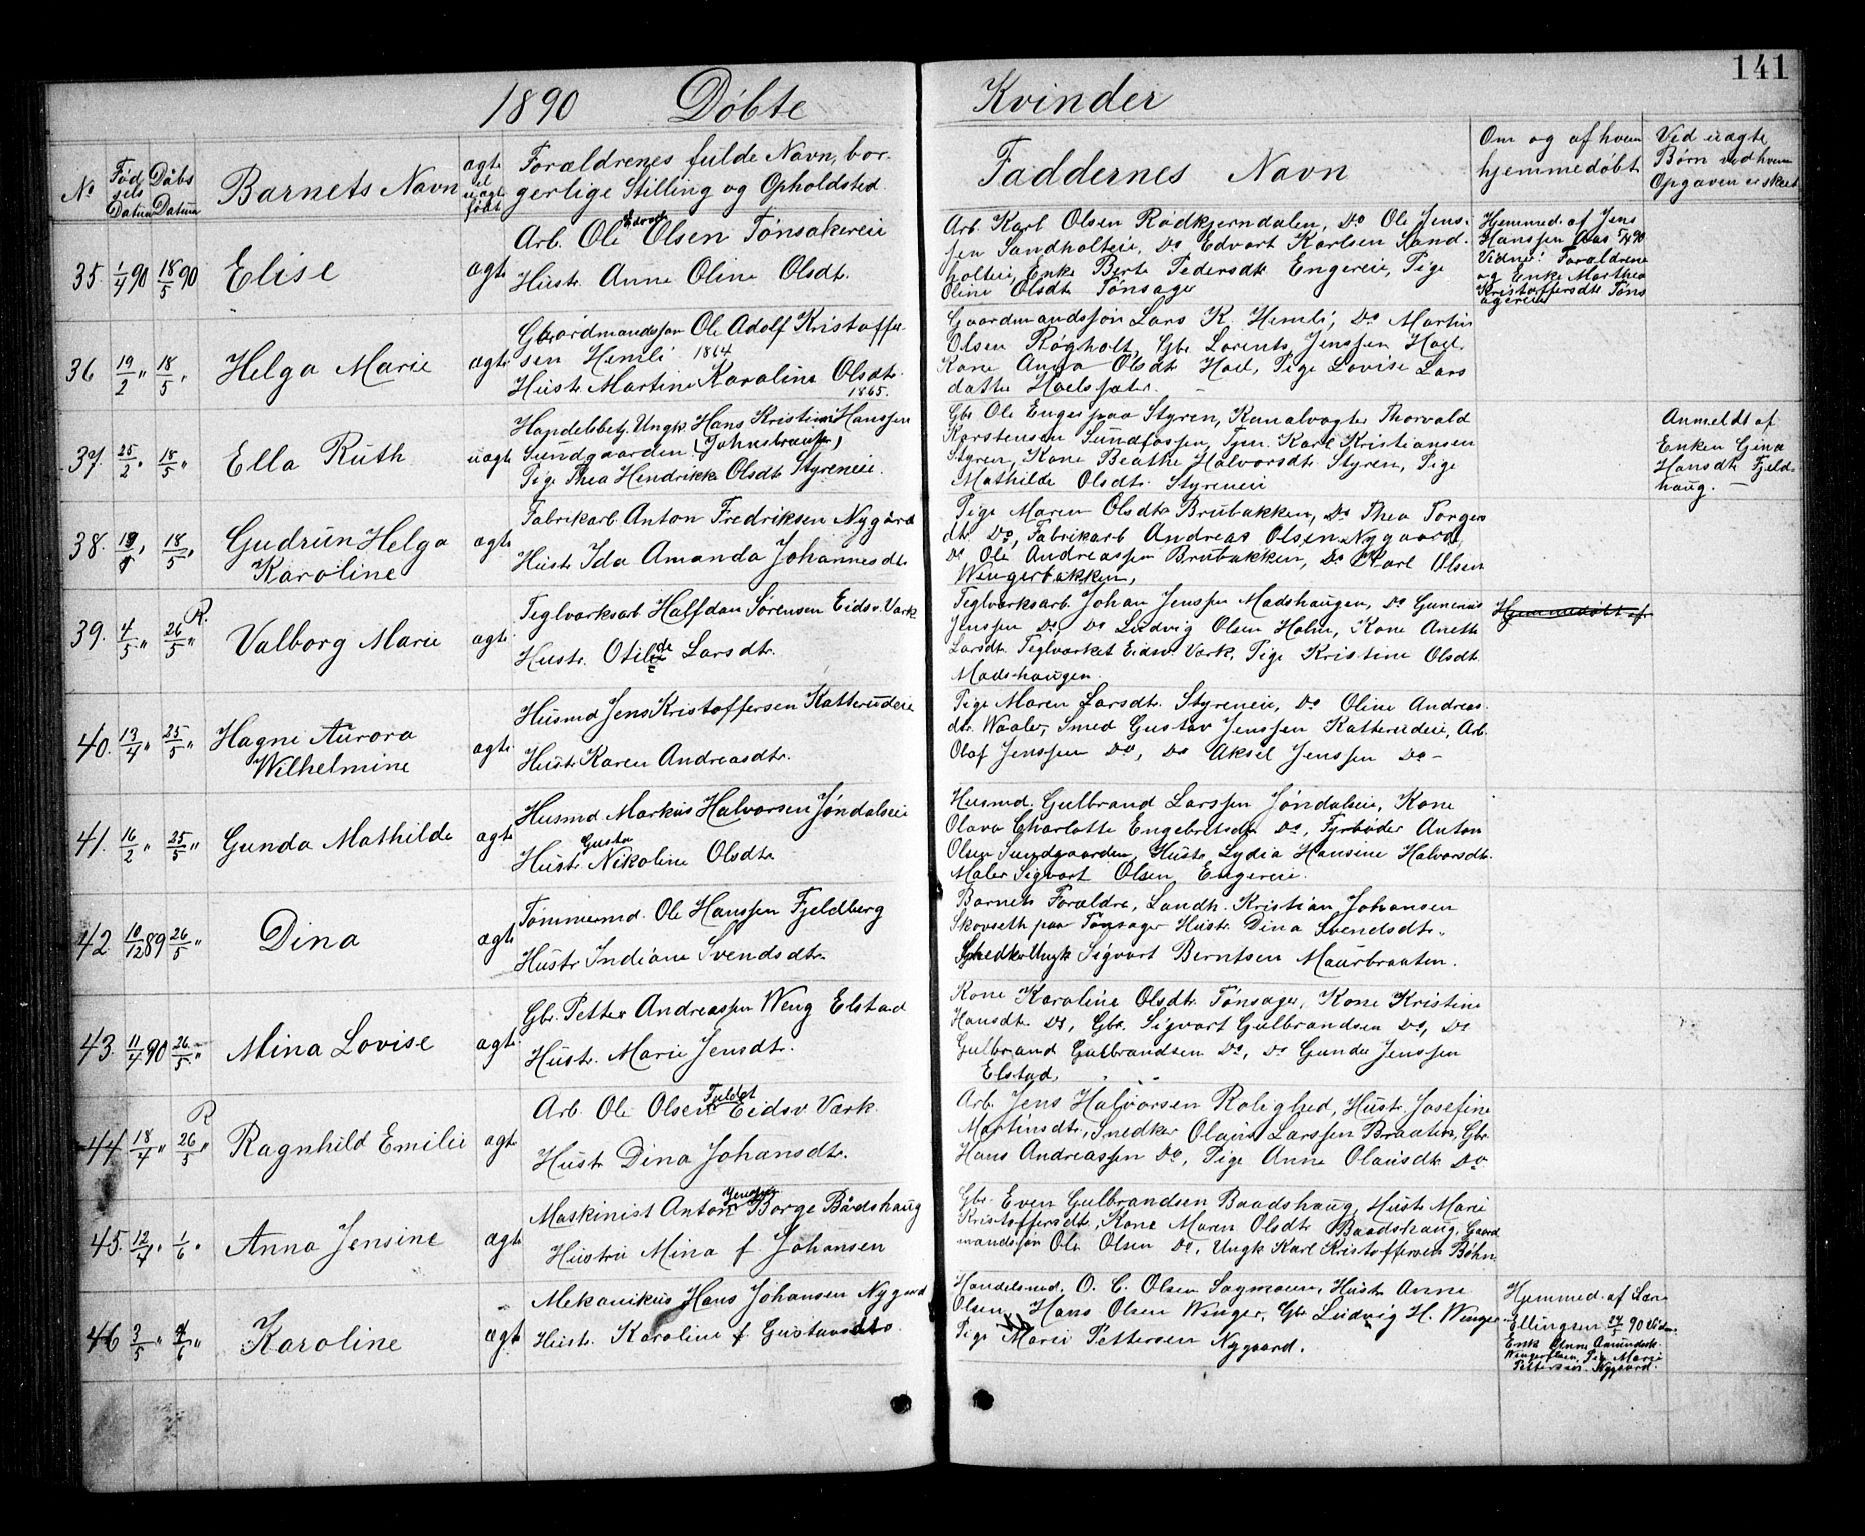 141
1890 Døbte Kvinder
No
Fødsels Datum
Døbs Datum
Barnets Navn
ægte el uægte født
Forældrenes fulde Navn, bor-
gerlige Stilling og Opholdsted
Faddernes Navn
Om og af hvem
hjemmedøbt
Ved uægte
Børn ved hvem
Opgaven er skeet
35. 1/4 90 18/5 90 Elise ægte
Arb. Ole Olsen Tønsakereie
Hustr. Anne Oline Olsdt.
Arb. Karl Olsen Rødkjerndalen, Do Ole Jens-
sen Sandholteie, Do Edvart Karlsen Sand-
holteie, Enke Berte Pedersdt. Engereie, Pige
Oline Olsdt. Tønsager
Hjemmed. af Jens
Hanssen Aas 90
Vidner: Forældrene
og Enke Marthea
Kristoffersdt. Tøns
agereie
36 19/2 " 18/5 " Helga Marie ægte
Gaardmandssøn Ole Adolf Kristoffer-
sen Hemli 1864
Hustr. Martine Karoline Olsdt.
1865.
Gaardmandssøn Lars K. Hemli, Do Martin
Olsen Røgholt, Gbr. Lorents Jenssen Hoel
Kone Anna Olsdt. Hoel, Pige Lovise Lars
datter Hoelssæter. -
37. 25/2 " 18/5 " Ella Ruth uægte
Handelsbetj. Ungk. Hans Kristian Hanssen
Sundgaarden (Johnsbraaten)
Pige Thea Hendrikke Olsdt. Styreneie.
Gbr. Ole Enger paa Styren, Kanalvogter Thorvald
Karstensen Sundfossen, Tjm. Karl Kristiansen
Styren, Kone Beathe Halvorsdt. Styren, Pige
Mathilde Olsdt. Styreneie
Anmeldt af
Enken Gina
Hansdt. Fjeld-
haug. -
38. 18/5 " Gudrun Helga
Karoline ægte
Fabrikarb. Anton Fredriksen Nygård
Hustr. Ida Amanda Johannesdt.
Pige Maren Olsdt. Brubakken, Do Thea Torgers
dt. Do, Fabrikarb Andreas Olsen Nygaard,
Do Ole Andreassen Brubakken, Do Karl Olsen
Wengerbakken,
39. 4/5 " 26/5 " R. Valborg Marie ægte
Teglværksarb. Halfdan Sørensen Eidsv. Værk
Hustr. Otilde Larsdt.
Teglværksarb. Johan Jenssen Madshaugen, Do Gunerius
Jenssen Do, Do Ludvig Olsen Holm, Kone Anette
Larsdt. Teglværket Eidsv. Værk, Pige Kristine Olsdt.
Madshaugen.
Hjemmedøbt af
40. 13/4 " 25/5 " Hagni Aurora
Wilhelmine ægte
Husmd Jens Kristoffersen Katterudeie
Hustr. Karen Andreasdt.
Pige Maren Larsdt. Styreneie, Do Oline Andreas-
dt. Waaler, Smed Gustav Jenssen Katterudeie, Arb.
Olaf Jenssen Do, Do Aksel Jenssen Do -
41. 16/2 " 25/5 " Gunda Mathilde ægte
Husmd Markus Halvorsen Jøndalseie
Gusta
Hustr. Nikoline Olsdt.
Husmd. Gulbrand Larssen Jøndalseie, Kone
Olava Charlotte Engebretsdt. Do, Fyrbøder Anton
Olsen Sundgaarden, Hustr. Lydia Hansine Halvorsdt.
Maler Sigvart Olsen Engereie.
42 10/12 89 26/5 " Dina ægte
Tømmermd. Ole Hanssen Fjeldberg
Hustr. Indiane Svendsdt.
Barnets Forældre, Landh. Kristian Johansen
Skovseth paa Tønsager Hustr. Dina Svendsdt.
Snedker Ungk. Sigvart Berntsen Maurbraaten.
43. 11/4 90 26/5 " Mina Lovise ægte
Gbr. Petter Andreassen Weng Elstad
Hustr. Marie Jensdt.
Kone Karoline Olsdt. Tønsager, Kone Kristine
Hansdt. Do, Gbr. Sigvart Gulbrandsen Do, Do
Gulbrand Gulbrandsen Do, Do Gunder Jenssen
Elstad.
44 18/4 " 26/5 " R Ragnhild Emilie ægte
Arb. Ole Olsen Eidsv. Værk
Hustr. Dina Johansdt.
Arb. Jens Halvorsen Rolighed, Hustr. Josefine
Martinsdt., Snedker Olaus Larssen Braaten, Gbr.
Hans Andreassen Do, Pige Anne Olausdt. Do
45. 12/4 " 1/6 " Anna Jensine ægte
Maskinist Anton Borge Bådshaug
Hustru Mina f Johansen
Gbr. Even Gulbrandsen Baadshaug, Hustr. Marie
Kristoffersdt., Kone Maren Olsdt. Baadshaug, Gaard
mandssøn Ole Olsen Do, Ungk. Karl Kristoffersen Bøhn
46 3/5 " /6 " Karoline ægte
Mekanikus Hans Johansen Nygaard
Hustr. Karoline f Gustavsdt.
Handelsmd. O. C. Olsen Sagmoen, Hustr. Anne
Olsen, Hans Olsen Winger, Gbr. Ludvig H. Winger
Pige Marie Pettersen Nygaard.
Hjemmed. af Lære
Ellingsen 90 Vidn.
Enke Anne Amundsdt.
Pige Marie
Pettersen Nygaard.